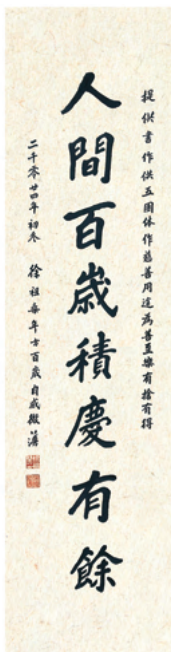 提供書作供五團体作慈善用途為善至樂有捨有得
人間百歲積慶有餘
二千零廿四年初冬 徐祖燊年方百歲自感微薄